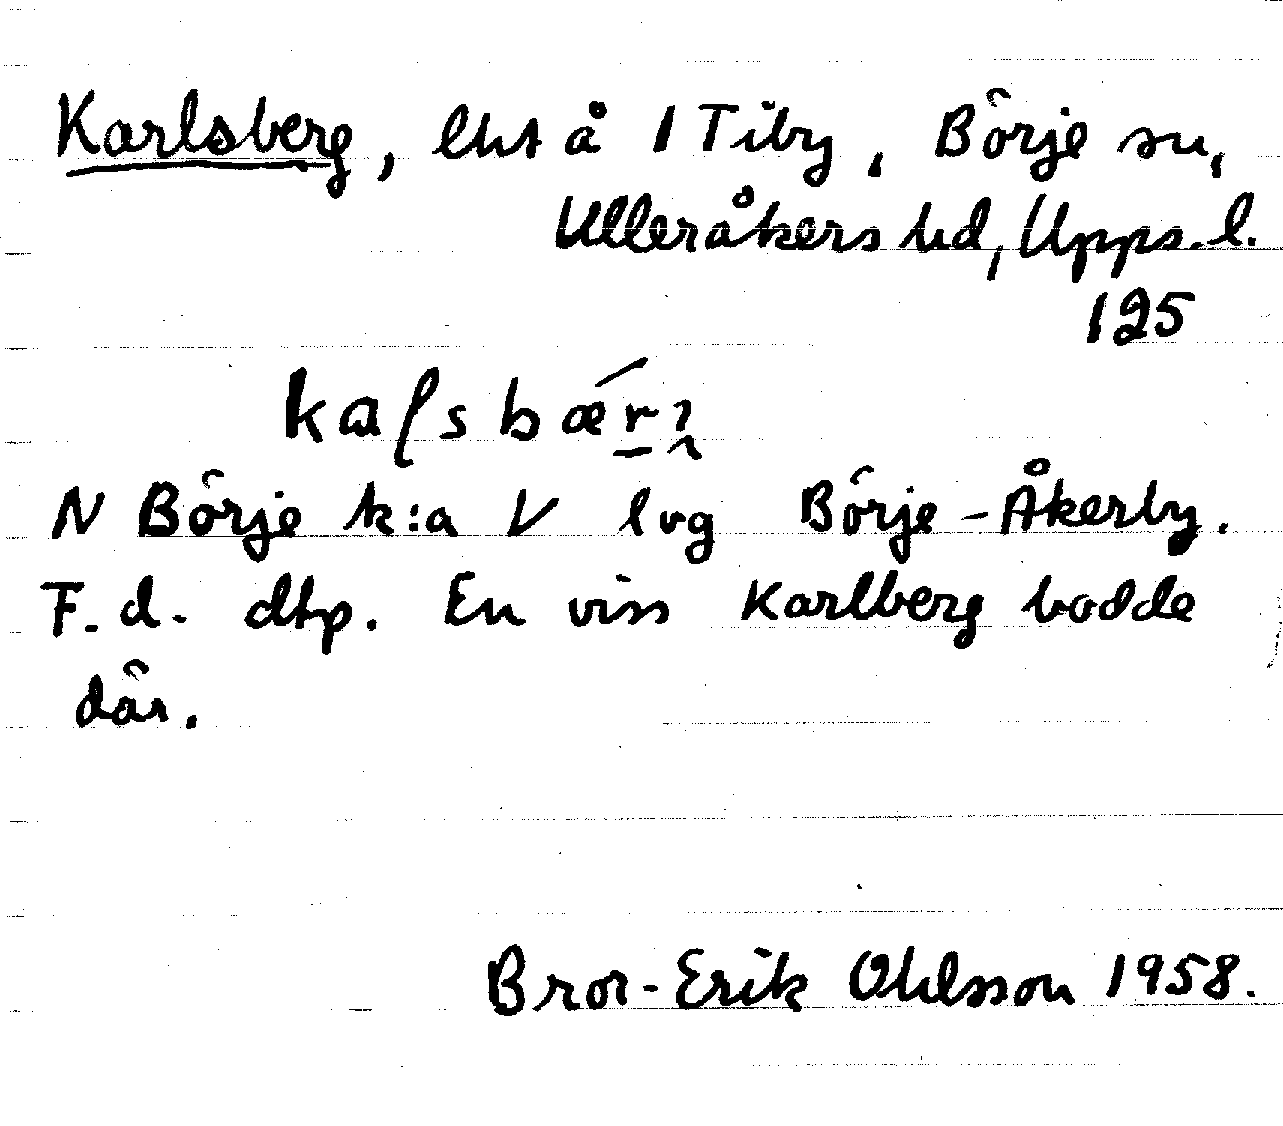 Karlsberg, lht å 1 Tiby, Börje sn,
Ulleråkers hd, Upps. l.
125
N Börje k:a V lvg Börje-Åkerby.
F. d. dtp. En viss Karlberg bodde
där.
Bror-Erik Ohlsson 1958.